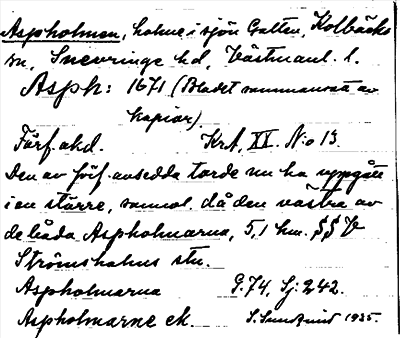 Aspholmen, holme i sjön Gatten, Kolbäcks
sn, Snevringe hd, Västmanl. l.
Asph: 1671 (Bladet sammansatt av
kopior)
Förf. okd. Krt. XX. N:o 13.
Den av förf. avsedda torde nu ha uppgått
i en större, sannol. då den västra av
de båda Aspholmarna, 5,1 hm. SSV
Strömsholms stn.
Aspholmarna G.74, Sj: 242.
Aspholmarne ek. S. Sundqvist 1935.